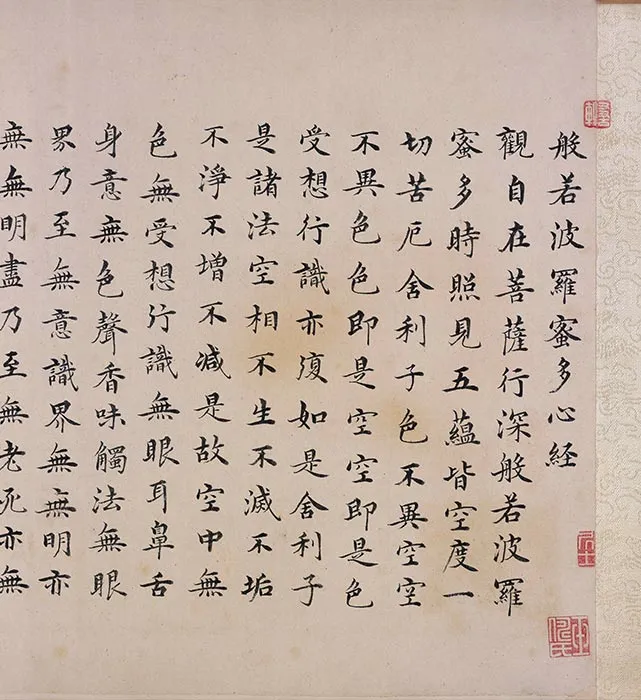 般若波羅蜜多心経
觀自在菩薩行深般若波羅
蜜多時照見五蘊皆空度一
切苦厄舍利子色不異空空
不異色色即是空空即是色
受想行識亦復如是舍利子
是諸法空相不生不滅不垢
不淨不增不減是故空中無
色無受想行識無眼耳鼻舌
身意無色聲香味觸法無眼
界乃至無意識界無無明亦
無無明盡乃至無老死亦無